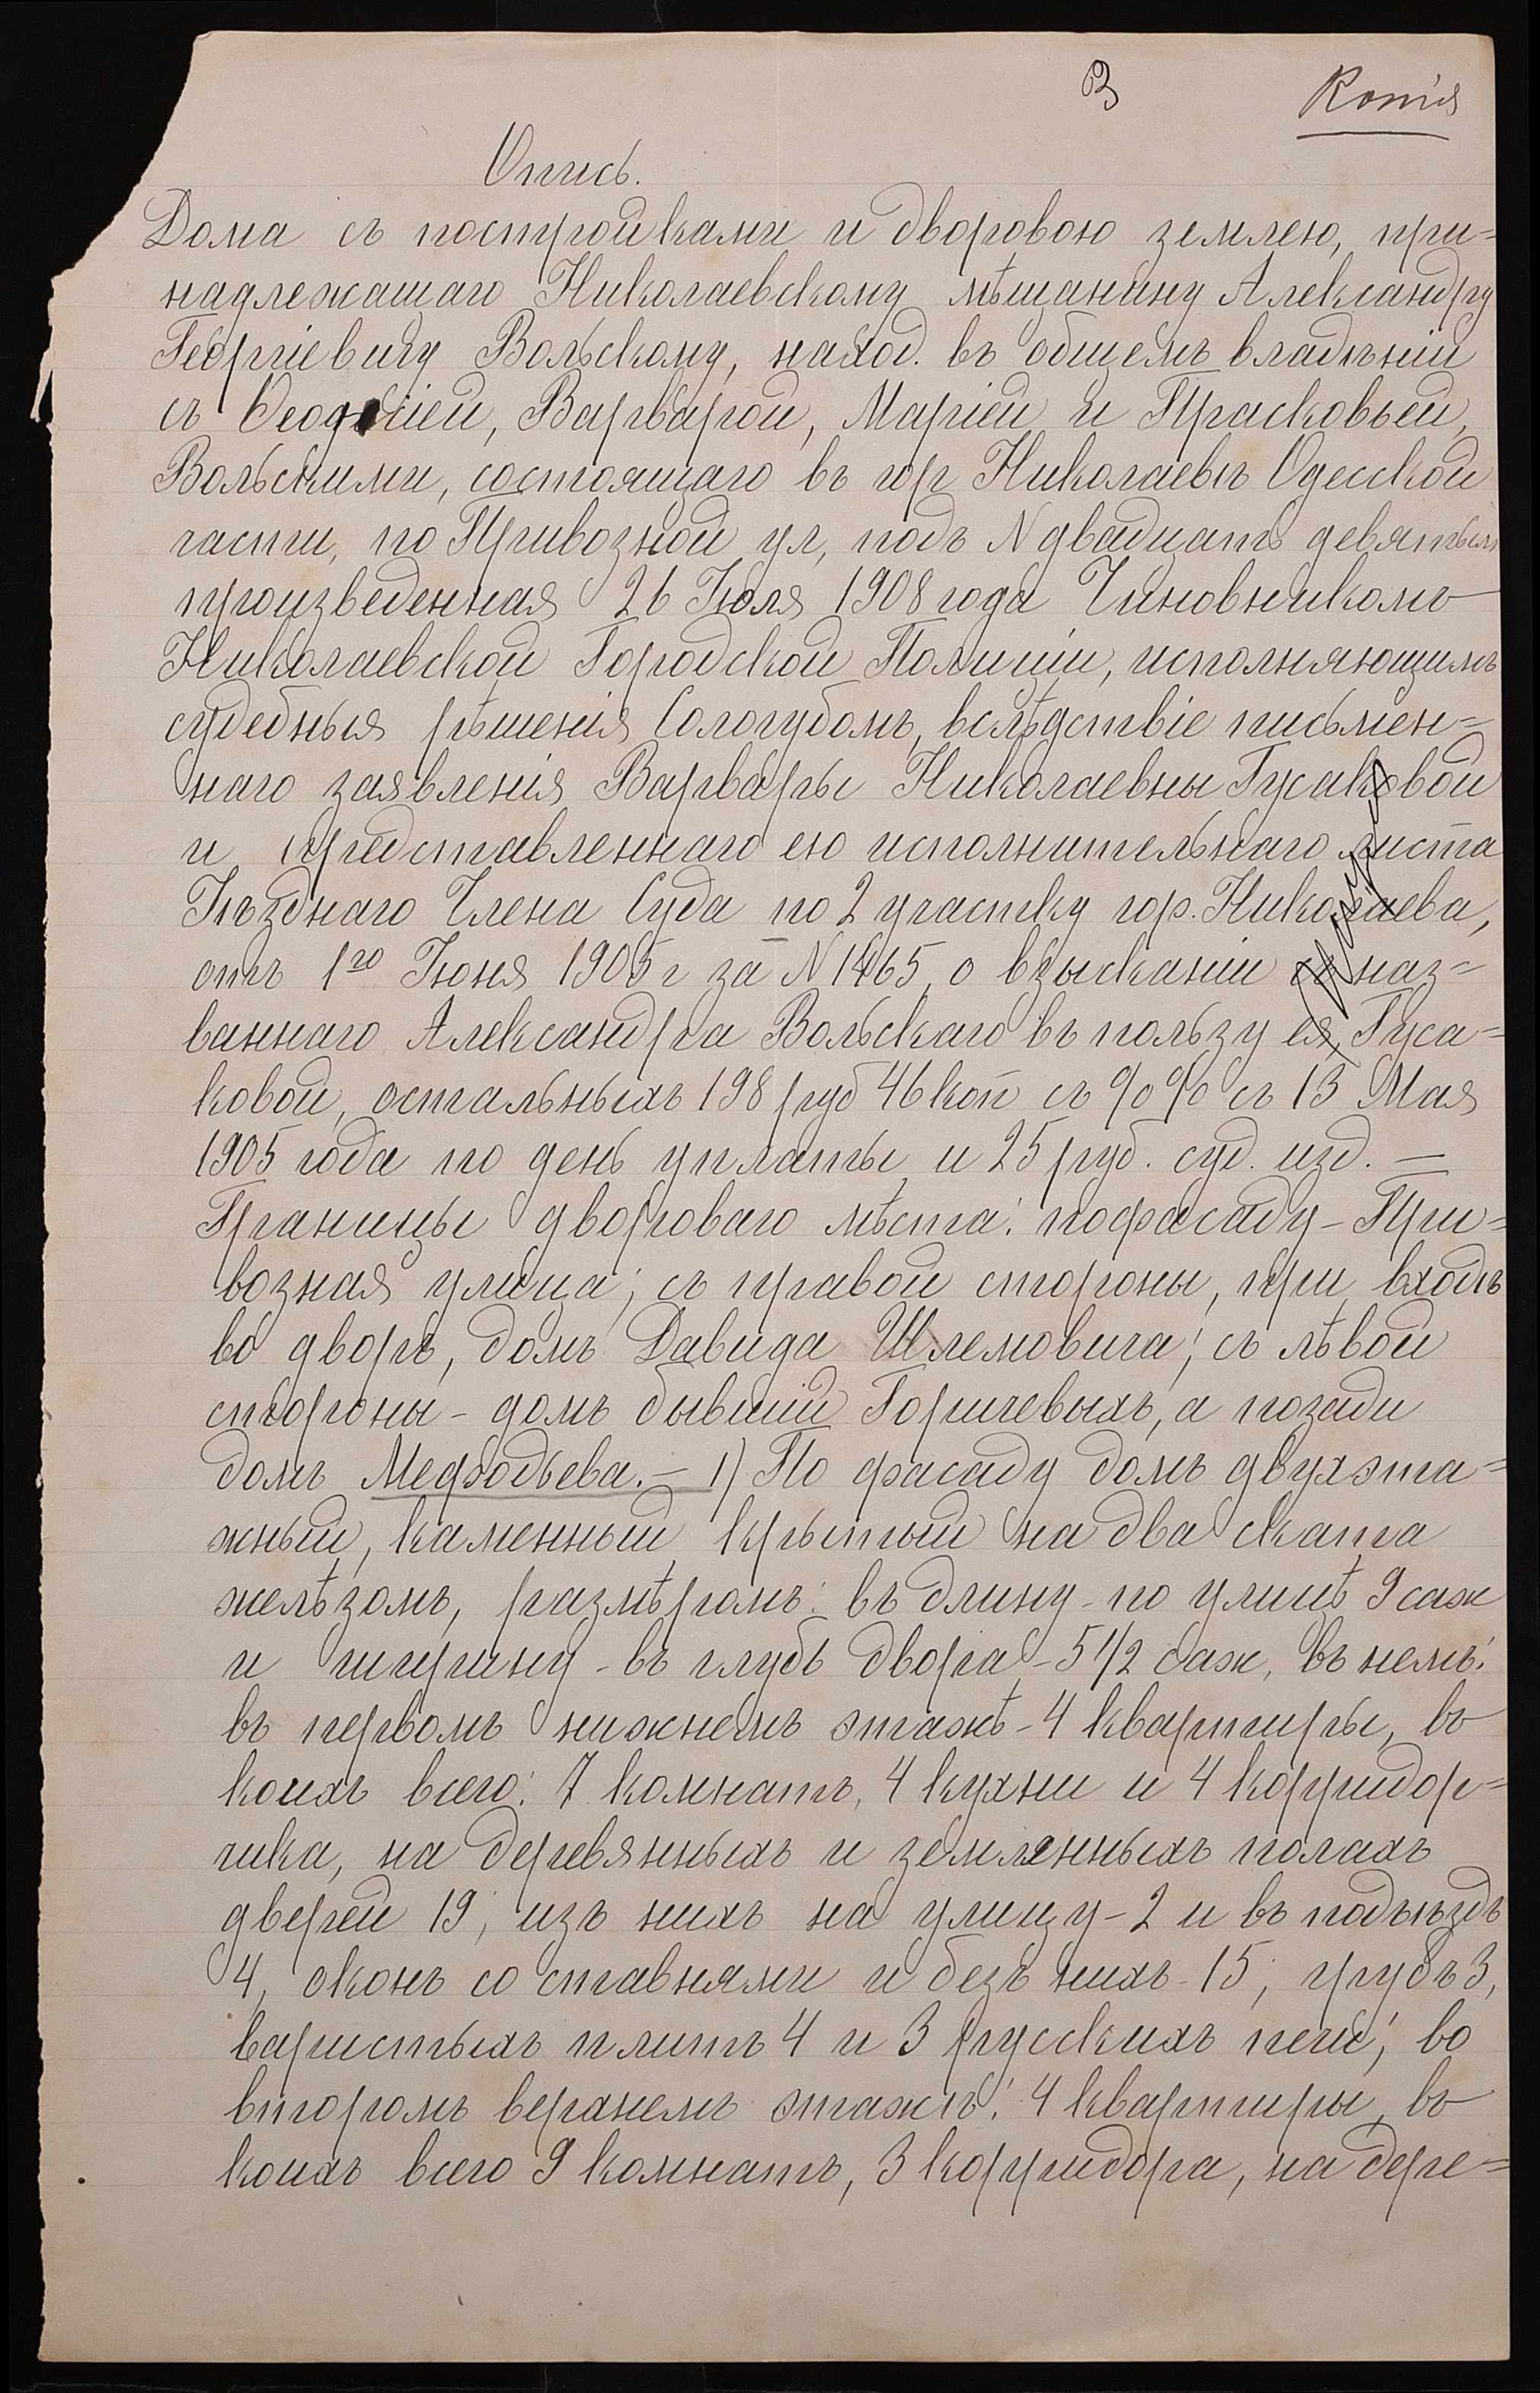 3
Копія
Опись.
Дома съ постройками и дворовою землею, при=
надлежащаго Николаевскому мѣщанину Александру
Георгіевичу Вольскому, наход. въ общемъ владѣніи
съ Ѳеодосіей, Варварой, Маріей и Прасковьей,
Вольскими, состоящаго въ гор Николаевѣ Одесской
части, по Привозной ул, подъ N двадцать девятымъ
произведенная 26 Іюля 1908 года Чиновникомъ
Николаевской Городской Полиціи, исполняющимъ
судебныя рѣшенія Сологубомъ, вслѣдствіе письмен=
наго заявленія Варвары Николаевны Гусаковой
и представленнаго ею исполнительнаго листа
Уѣзднаго Члена Суда по 2 участку гор. Николаева,
отъ 1го Іюня 1905 г за N 1465, о взысканіи съ наз=
ваннаго Александра Вольскаго въ пользу ея, Гуса=
ковой, остальныхъ 198 руб 46 коп съ %% съ 13 Мая
1905 года по день уплаты и 25 руб. суд. изд. —
Границы двороваго мѣста: по фасаду - При=
возная улица; съ правой стороны, при входѣ
во дворъ, домъ Давида Шлемовича; съ лѣвой
стороны - домъ бывшій Горичевыхъ, а позади
домъ Мефодьева. — 1) По фасаду домъ двухэта=
жный, каменный, крытый на два ската
желѣзомъ, размѣромъ: въ длину - по улицѣ 9 саж
и ширину - въ глубь двора - 5 1/2 саж, въ немъ:
въ первомъ нижнемъ этажѣ - 4 квартиры, въ
коихъ всего: 7 комнатъ, 4 кухни и 4 корридор=
чика, на деревянныхъ и земляныхъ полахъ
дверей 19, изъ нихъ на улицу - 2 и въ подъѣздъ
4, оконъ со ставнями и безъ нихъ - 15; грубъ 3,
варистыхъ плитъ 4 и 3 русскихъ печи; во
второмъ верхнемъ этажѣ: 4 квартиры, въ
коихъ всего 9 комнатъ, 3 корридора, на дере=